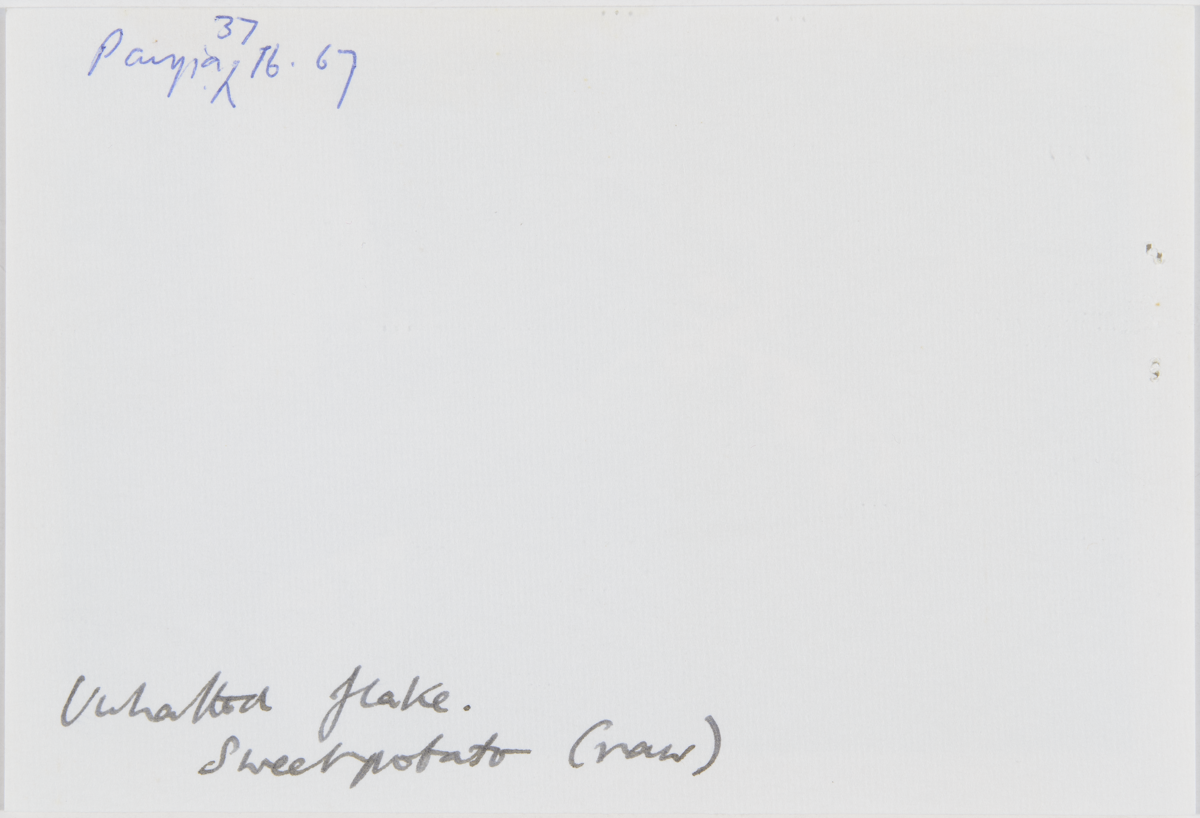 37
Paiyia 16. 67
Unhafted flake.
Sweet potato (raw)